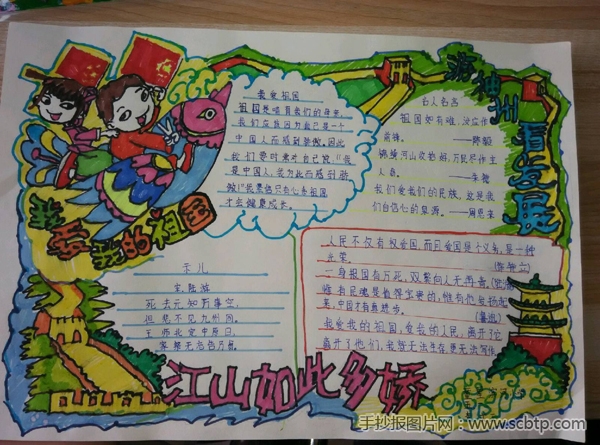 我爱祖国
祖国是哺育我们的母亲,
我们应该因为自己是一个
中国人而感到骄傲。因此
我们要时常对自己说:“我
是中国人,我为此而感到骄
傲!”我票信只有心系祖国
才会健康成长。
游神州
看发展
名人名言
祖国如有难,汝应作
前锋。 ——陈毅
锦绣河山收拾好,万民尽作主
人翁。 ——朱德
我们爱我们的民族,这是我
们自信心的泉源。——周恩来
我爱我的祖国
示儿
宋 陆游
死去元知万事空,
但悲不见九州同。
王师北定中原日,
家祭无忘告乃翁。
人民不仅有权爱国,而且爱国是个义务,是一种
光荣。
一身报国有万死,双鬓向人无再青。
惟有民魂是值得宝贵的,惟有他发扬起
来,中国才有真进步。 (鲁迅)
我爱我的祖国,爱我的人民,离开了它
离开了他们,我就无法生存,更无法写作。
江山如此多娇
手抄报图片网 - www.scbtp.com